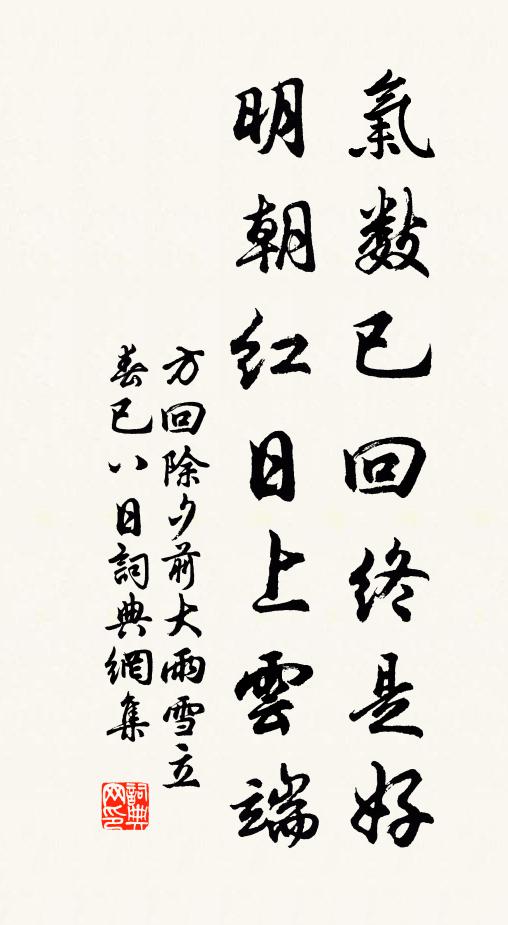 氣數已回終是好
明朝紅日上雲端
方回除夕前大雨雪立
春已八日詞典網集
詞典网印